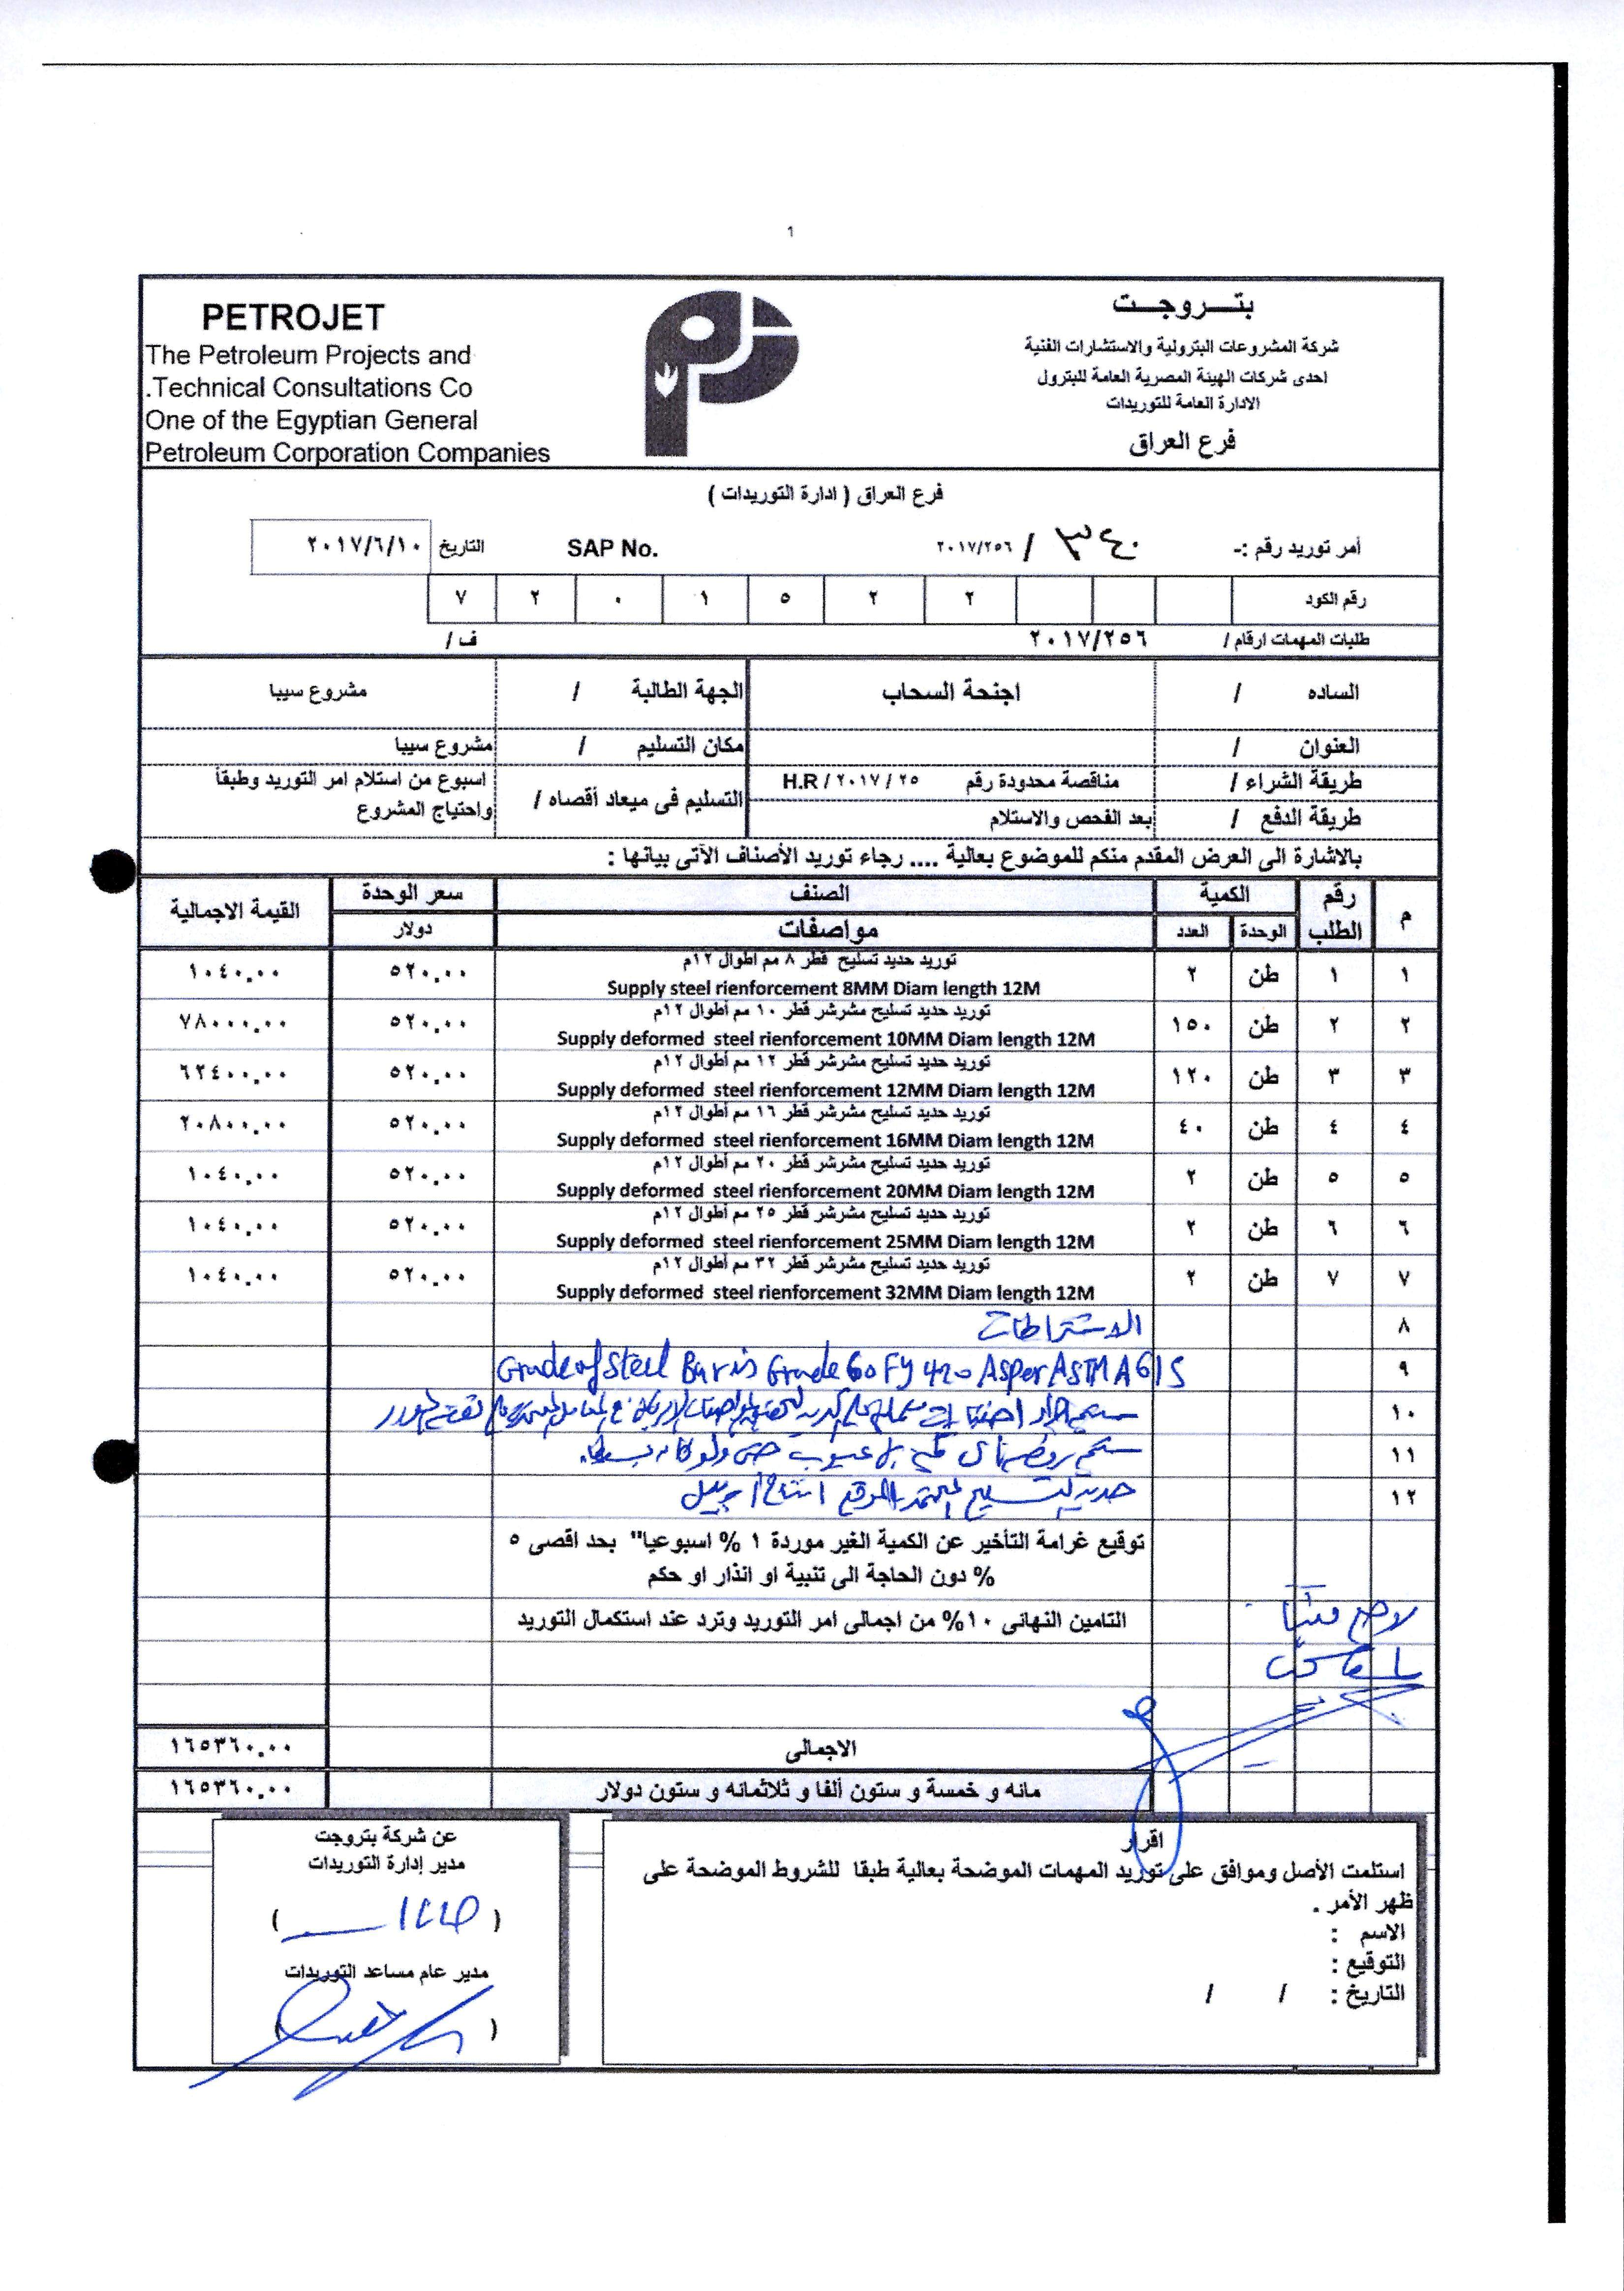 1
PETROJET
The Petroleum Projects and
.Technical Consultations Co
One of the Egyptian General
Petroleum Corporation Companies
بتـــروجـــت
شركة المشروعات البترولية والاستشارات الفنية
احدى شركات الهيئة المصرية العامة للبترول
الادارة العامة للتوريدات
فرع العراق
فرع العراق ( ادارة التوريدات )
أمر توريد رقم :- ٣٤٠ / ٢٠١٧/٢٥٦ SAP No. التاريخ ٢٠١٧/٦/١٠
رقم الكود ٢ ٢ ٥ ١ ٠ ٢ ٧
طلبات المهمات ارقام / ٢٠١٧/٢٥٦ ف /
الساده / اجنحة السحاب الجهة الطالبة / مشروع سيبا
العنوان / مكان التسليم / مشروع سيبا
طريقة الشراء / مناقصة محدودة رقم H.R / ٢٠١٧ / ٢٥ التسليم فى ميعاد أقصاه / اسبوع من استلام امر التوريد وطبقاً
واحتياج المشروع
طريقة الدفع / بعد الفحص والاستلام
بالاشارة الى العرض المقدم منكم للموضوع بعالية .... رجاء توريد الأصناف الآتى بيانها :
م رقم الطلب الكمية الصنف سعر الوحدة القيمة الاجمالية
الوحدة العدد مواصفات دولار
١ ١ طن ٢ توريد حديد تسليح قطر ٨ مم أطوال ١٢م ٥٢٠.٠٠ ١٠٤٠.٠٠
Supply steel rienforcement 8MM Diam length 12M
٢ ٢ طن ١٥٠ توريد حديد تسليح مشرشر قطر ١٠ مم أطوال ١٢م ٥٢٠.٠٠ ٧٨٠٠٠.٠٠
Supply deformed steel rienforcement 10MM Diam length 12M
٣ ٣ طن ١٢٠ توريد حديد تسليح مشرشر قطر ١٢ مم أطوال ١٢م ٥٢٠.٠٠ ٦٢٤٠٠.٠٠
Supply deformed steel rienforcement 12MM Diam length 12M
٤ ٤ طن ٤٠ توريد حديد تسليح مشرشر قطر ١٦ مم أطوال ١٢م ٥٢٠.٠٠ ٢٠٨٠٠.٠٠
Supply deformed steel rienforcement 16MM Diam length 12M
٥ ٥ طن ٢ توريد حديد تسليح مشرشر قطر ٢٠ مم أطوال ١٢م ٥٢٠.٠٠ ١٠٤٠.٠٠
Supply deformed steel rienforcement 20MM Diam length 12M
٦ ٦ طن ٢ توريد حديد تسليح مشرشر قطر ٢٥ مم أطوال ١٢م ٥٢٠.٠٠ ١٠٤٠.٠٠
Supply deformed steel rienforcement 25MM Diam length 12M
٧ ٧ طن ٢ توريد حديد تسليح مشرشر قطر ٣٢ مم أطوال ١٢م ٥٢٠.٠٠ ١٠٤٠.٠٠
Supply deformed steel rienforcement 32MM Diam length 12M
٨ الاشتراطات
٩ Grade of Steel Bar is Grade 60 Fy 420 As per ASTM A615
١٠ سيتم اجراء اختبارات
١١ سيتم رفض اى عيوب حتى ولو كانت بسيطة
١٢ حديد التسليح المعتمد بالموقع انتاج اربيل
توقيع غرامة التأخير عن الكمية الغير موردة ١ % اسبوعيا" بحد اقصى ٥
% دون الحاجة الى تنبية او انذار او حكم
التامين النهائى ١٠% من اجمالى امر التوريد وترد عند استكمال التوريد
الاجمالى ١٦٥٣٦٠.٠٠
مائه و خمسة و ستون ألفا و ثلاثمائه و ستون دولار ١٦٥٣٦٠.٠٠
اقرار
استلمت الأصل وموافق على توريد المهمات الموضحة بعالية طبقا للشروط الموضحة على
ظهر الأمر .
الاسم :
التوقيع :
التاريخ : / /
عن شركة بتروجت
مدير إدارة التوريدات
( )
مدير عام مساعد التوريدات
( )